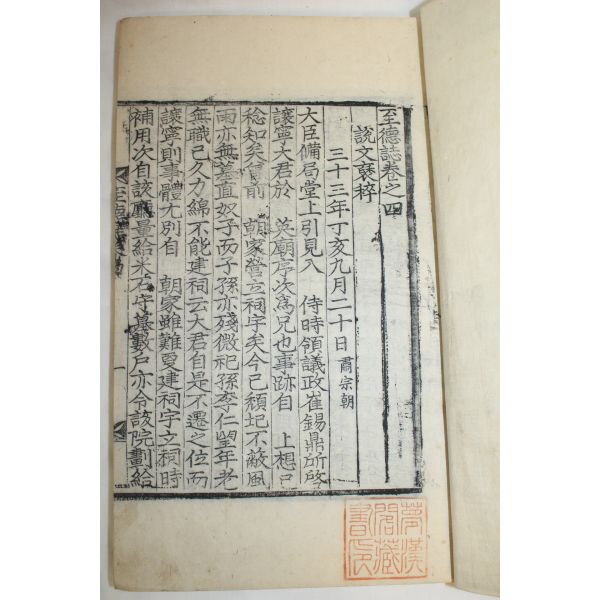 至德誌卷之四
說文裒稡
三十三年丁亥九月二十日 肅宗朝
大臣備局堂上引見入 侍時領議政崔錫鼎所啓
讓寧大君於 英廟序次爲兄也事跡自 上想已
稔知矣 前 朝家營立祠宇矣今已頹圮不敵風
雨亦無墓直奴子而子孫亦殘微祀孫李仁望年老
無職已久力綿不能建祠云大君自是不遷之位而
讓寧則事體尤別自 朝家雖難更建祠宇立祠時
補用次自該廳量給米石守墓數戶亦令該院劃給
一
夢漢
閣藏
書印